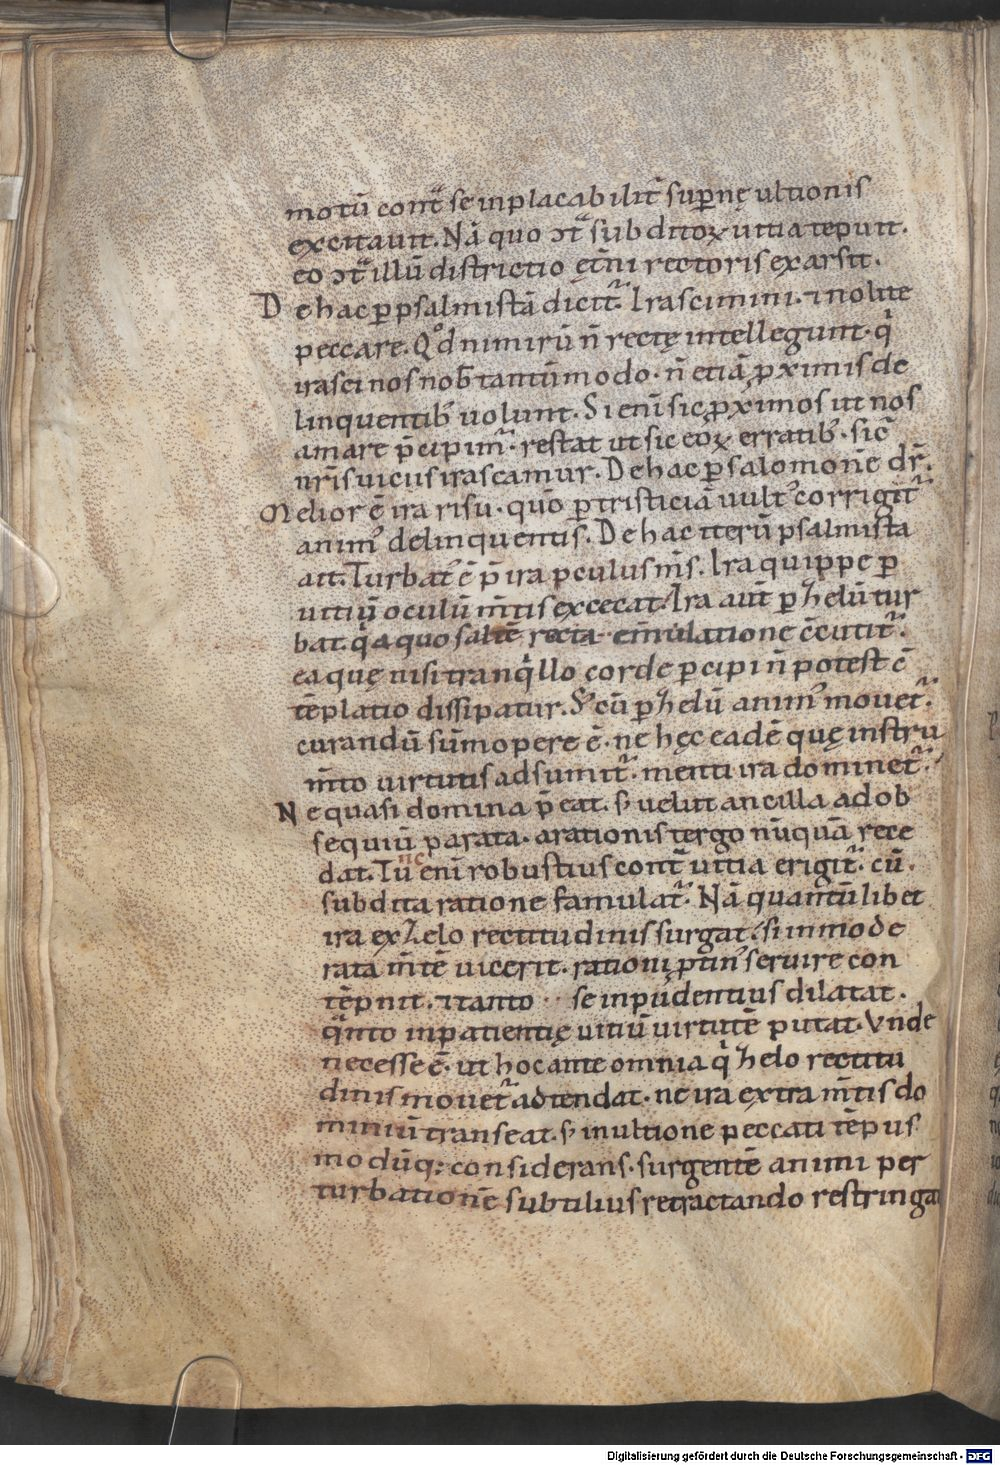 motū contᷓ se inplacabilit̄ sup̄nę ultionis
excitauit. Nā quo ɔtᷓ subditoꝝ uitia tepuit.
eo ɔtᷓ illū districtio ęt̄ni rectoris exarsit.
De hac ꝑ psalmistā dicit᷑. Irascimini. ⁊ nolite
peccare. Qd̊ nimirū n̄ rectę intellegunt. q̇
irasci nos nob̄ tantūmodo. n̄ etiā ꝓximis de
linquentib᷒ uolunt. Si eni᷒ sic ꝓximos ut nos
amare p̄cipim᷒. restat ut sic eoꝝ erratib᷒. sic̄
nr̄is uiciis irascamur. De hac ꝑ salomonē dr̄.
Melior ē ira risu. quō ꝑ tristiciā uult᷒ corrigit᷑
anim᷒ delinquentis. De hac iterū psalmista
ait. Turbat᷒ ē p̄ ira oculus m̄s. Ira quippe ꝑ
uitiū oculū m̄tis excecat. Ira aut̄ ꝑ zelū tur
bat. q̇a quo saltē recta emulatione c̄cutit᷑.
ea quę nisi tranq̇llo corde percipi n̄ potest c̄
tēplatio dissipatur. Sꝫ cū ꝑ zelū anim᷒ mouet᷑.
curandū sūmopere ē. ne hęc eadē quę instru
m̄to uirtutis adsumit᷑. menti ira dominet᷑.
Ne quasi domina p̄eat. sꝫ uelut ancilla ad ob
sequiū parata. a rationis tergo nūquā rece
dat. Tunc eni᷒ robustius contᷓ uitia erigit᷑. cū
subdita ratione famulat᷑. Nā quantūlibet
ira ex zelo rectitudinis surgat. si inmode
rata m̄tē uicerit. rationi ꝓtin᷒ seruire con
tēpnit. ⁊ tanto se inpudentius dilatat.
qᷓnto inpatientię uitiū uirtutē putat. Vnde
necesse ē. ut hoc ante omnia q̇ zelo rectitu
dinis mouet᷑ adtendat. ne ira extra m̄tis do
miniū transeat. sꝫ in ultione peccati tēpus
modūq; considerans. surgentē animi per
turbationē subtilius retractando restringat
Digitalisierung gefördert durch die Deutsche Forschungsgemeinschaft - DFG